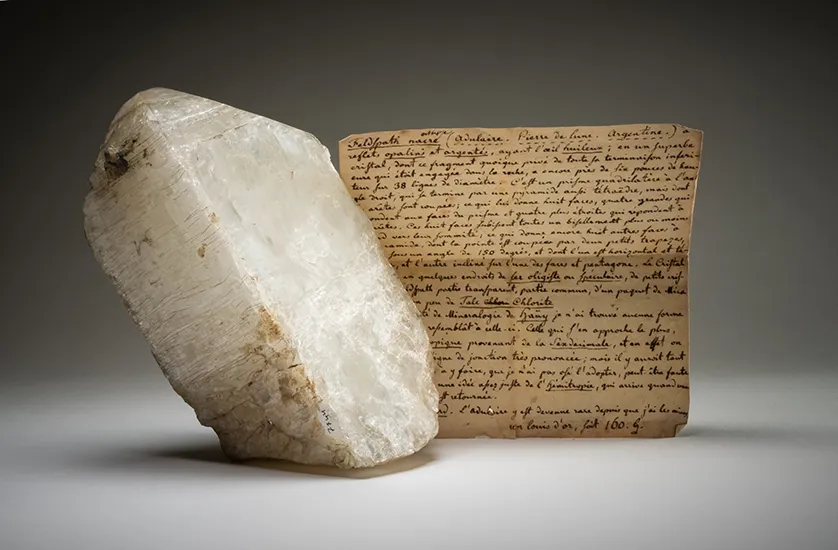 Feldspath nacré (Adulaire. Pierre de Lune. Argentine.) à
reflets opalins et argentés, ayant l'œil huileux; en un superbe
cristal, dont ce fragment quoique privé de toute sa terminaison inféri-
eure qui était engagée dans la roche, a encore près de six pouces de hau-
teur sur 38 lignes de diamètre. C'est un prisme quadrilatère à l'an
gle droit, qui se termine par une pyramide aussi tétraèdre, mais dont
arêtes sont coupées; ce qui lui donne huit faces, quatre grandes qui
pondent aux faces du prisme et quatre plus étroites qui répondent à
Ces huit faces subissent toutes un bisellement plus ou moins
vers leur sommité; ce qui donne encore huit autres faces à
dont la pointe est coupée par deux petits trapèzes,
sous un angle de 150 degrés, et dont l'un est horizontal et
et l'autre incliné sur l'une des faces et pentagone. Le Cristal
en quelques endroits de fer oligiste ou Spéculaire, de petits cris-
partie transparent, partie commun, d'un paquet de Mica
peu de Talc Chlorite
de Minéralogie de Haüy je n'ai trouvé aucune forme
à celle-ci. Celle qui s'en approche le plus,
provenant de la Sexdecimale, et en effet on
de jonction très prononcée; mais il y auroit tant
à y faire, que je n'ai pas osé l'adopter, peut-être faute
une idée assez juste de l'Hémitropie, qui arrive quand un
est retournée.
L'adulaire y est devenue rare depuis que j'ai les
un louis d'or, soit 160.